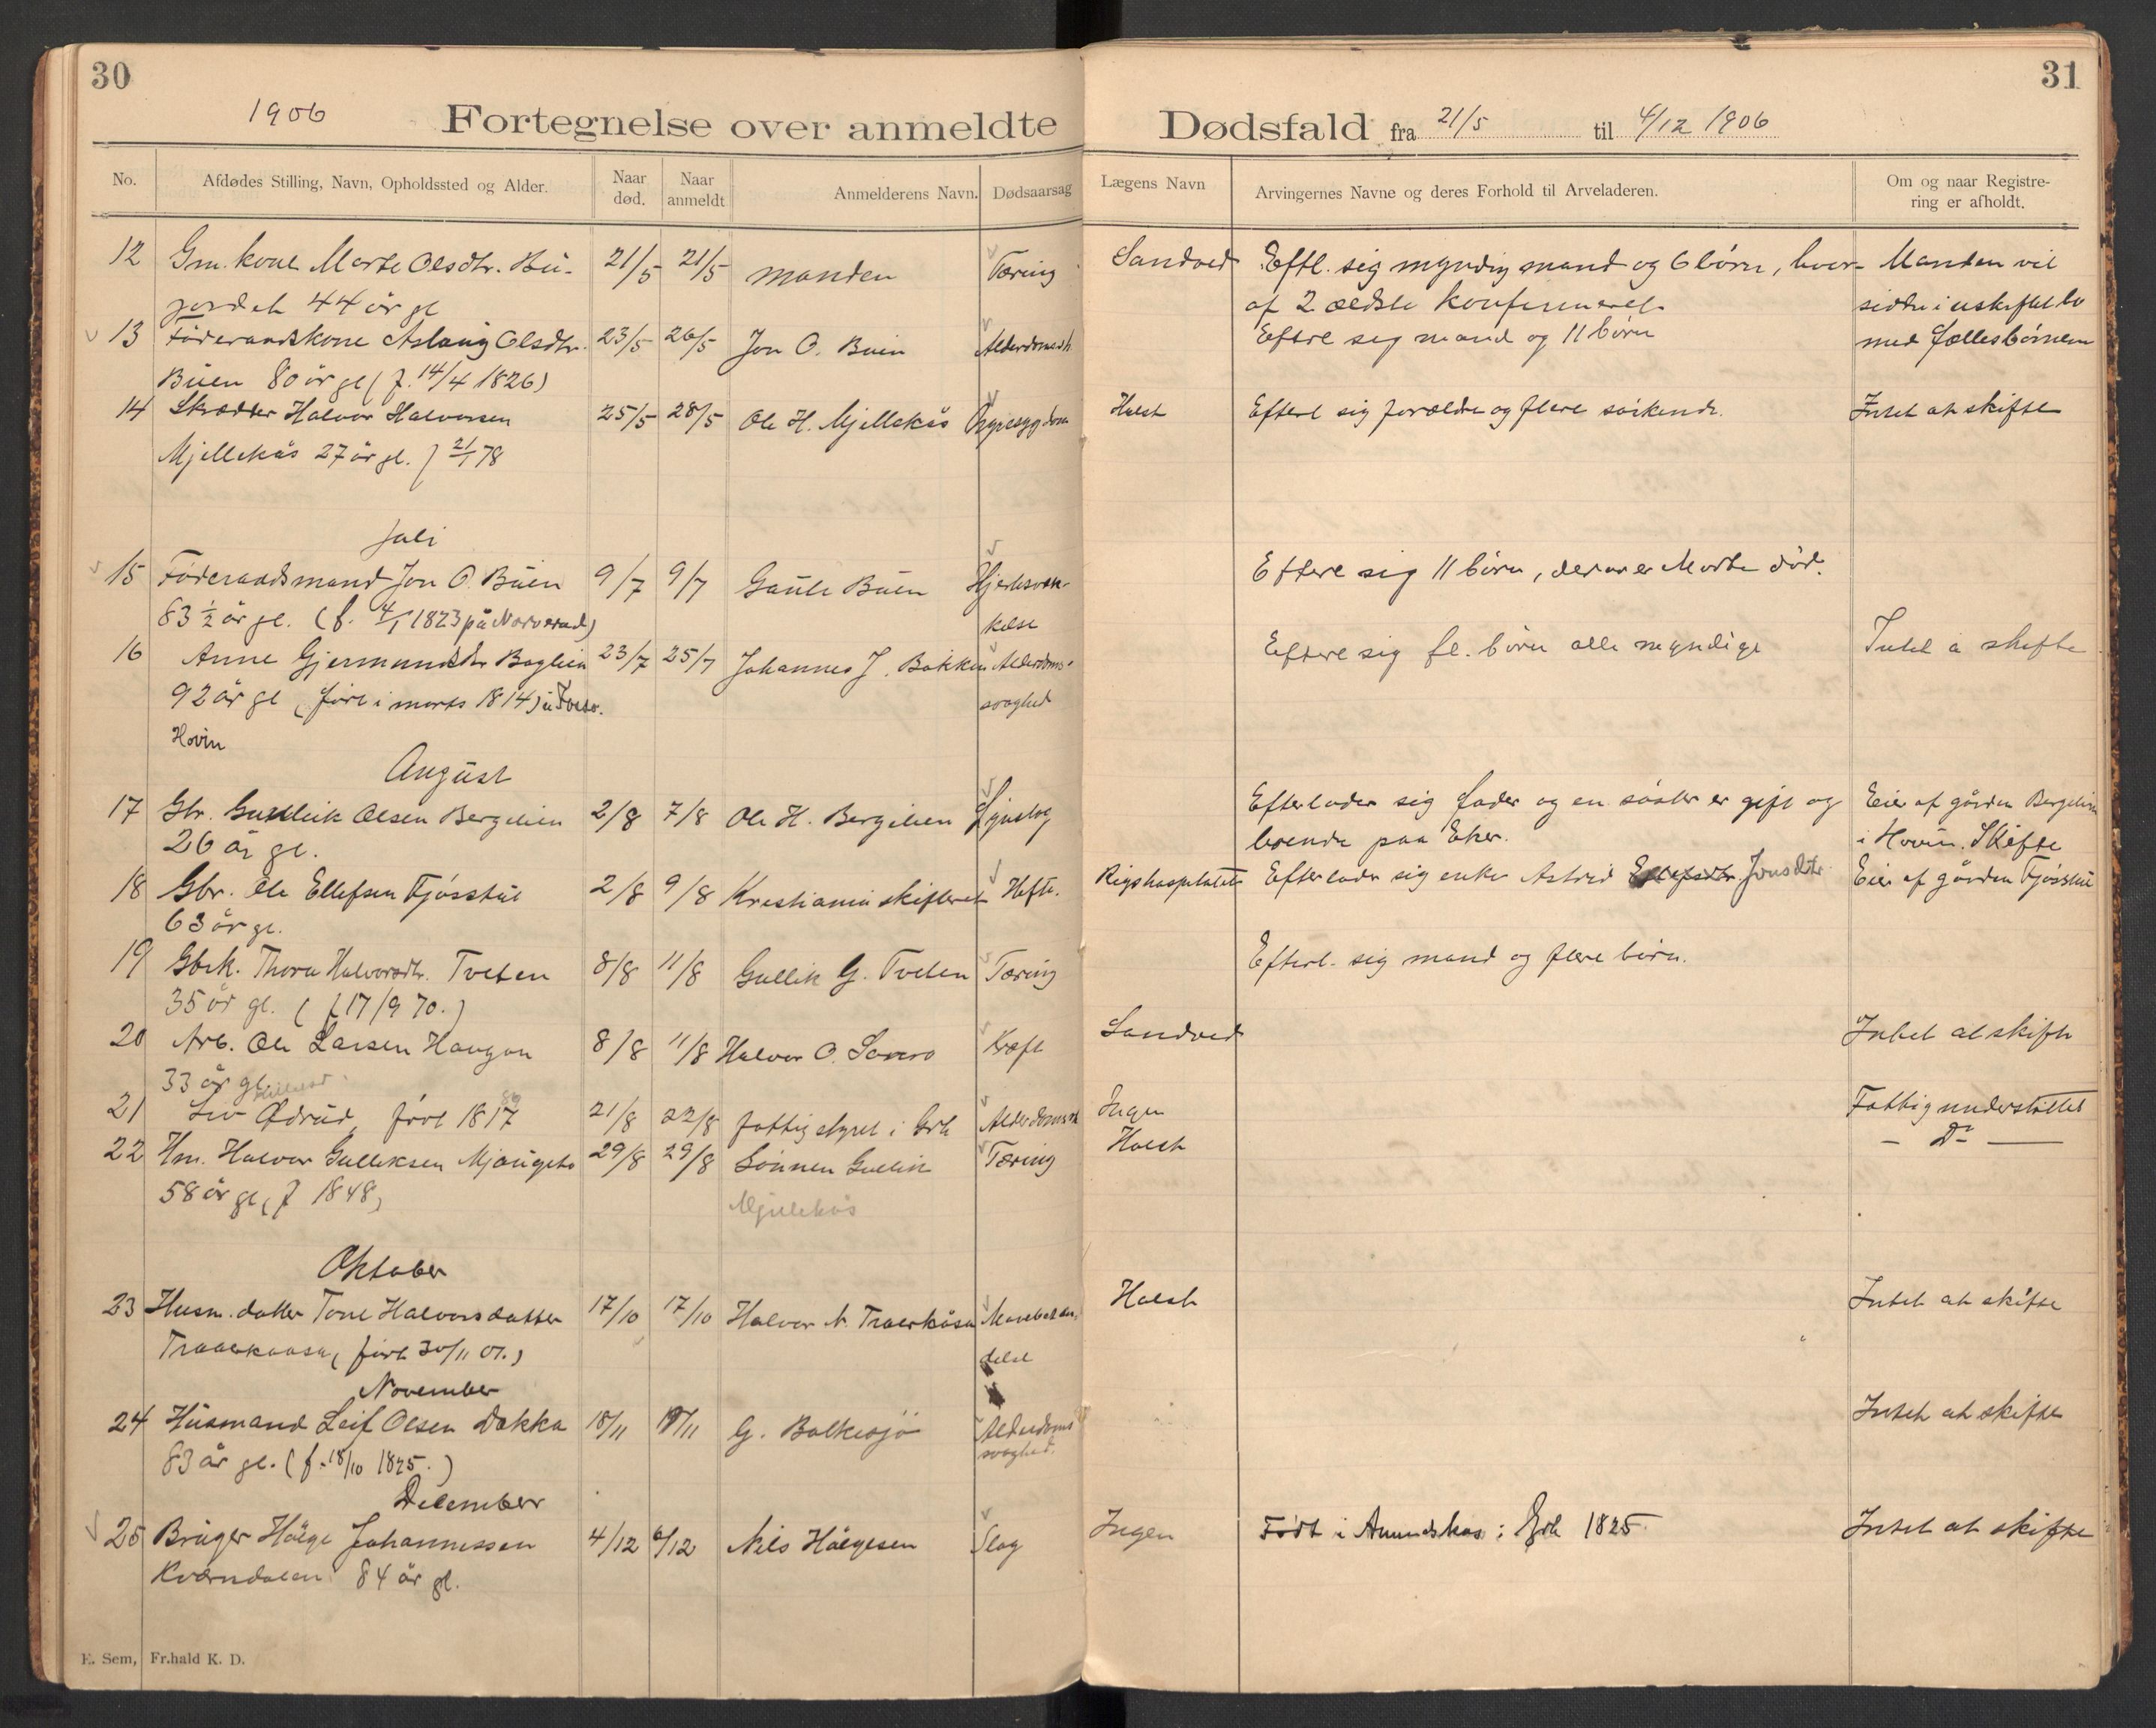 30
1906 Fortegnelse over anmeldte
No. Afdødes Stilling, Navn, Opholdssted og Alder. Naar død. Naar anmeldt Anmelderens Navn. Dødsaarsag
12 Gm. kone Marte Olsdtr. Bu- 21/5 21/5 manden Tæring
jordet 44 år gl
13 Føderaadskone Aslaug Olsdtr. 23/5 26/5 Jon O. Buen Alderdomssh
Buen 80 år gl (f. 14/4 1826)
14 Skrædder Halvor Halvorsen 25/5 28/5 Ole H. Mjellekås Nyresygdom
Mjellekås 27 år gl. f 21/1 78
Juli
15 Føderaadsmand Jon O. Buen 9/7 9/7 Gaute Buen Hjertesvæk-
83 ½ år gl. (f. 4/1 1823 på Norverud) kelse
16 Anne Gjermundsdtr Böglien 23/7 25/7 Johannes J. Bakken Alderdoms-
92 år gl (født i marts 1814) svaghed
Hovin
August
17 Gbr. Gullik Olsen Bergelien 2/8 7/8 Ole H. Bergelien Lynslag
26 år gl.
18 Gbr. Ole Ellefsen Fjøsstul 2/8 9/8 Kristiania skifteret Hofte.
63 år gl.
19 Gbrk. Thora Halvorsdtr. Tveten 8/8 11/8 Gullik G. Tveten Tæring
35 år gl. (f 17/9 70.)
20 Arb. Ole Larsen Haugan 8/8 11/8 Halvor O. Kræft
33 år gl.
21 Liv Ødrud, født 1817 21/8 22/8 fattigstyret i Grh Alderdomssh
22 Hm. Halvor Gulliksen 29/8 29/8 Sønnen Gullik Tæring
58 år gl, (f 1848) Mjellekås
Oktober
23 Husm. datter Tone Halvorsdatter 17/10 17/10 Halvor N. Traaerkåsa
Traaerkaasa, (født 30/11 01.) delse
November
24 Husmand Leif Olsen Dokka 18/11 19/11 G. Bolkesjø Alderdoms
83 år gl. (f. 18/10 1825.) svaghed.
December
25 Bruger Hølge Johannessen 4/12 6/12 Nils Hølgesen Slag
Kværndalen 84 år gl.
E. Sem, Fr.hald K. D.
31
Dødsfald fra 21/5 til 4/12 1906
Lægens Navn Arvingernes Navne og deres Forhold til Arveladeren. Om og naar Registre-ring er afholdt.
Sandved Eftl. sig myndig mand og 6 børn, hvor- Manden vil
af 2 ældste konfirmeret. sidde i uskiftet bo
Efterl sig mand og 11 børn med fællesbørnene
Holst Efterl sig forældre og flere søskende. Intet at skifte
Efterl sig 11 børn, derav er Marte død.
Efterl sig fl. børn alle myndige Intet å skifte
Efterlader sig fader og en søster er gift og Eier af gården Bergelien
boende paa Eker. i Hovin. Skifte
Rigshospitalet Efterlader sig enke Astrid Jonsdtr Eier af gården Fjøsstul
Efterl. sig mand og flere børn.
Sandved Intet at skifte
Ingen Fattigunderstøttet
Holst — Do —
Holst Intet at skifte
Intet at skifte
Ingen Født i Amundskås i Grh 1825. Intet at skifte